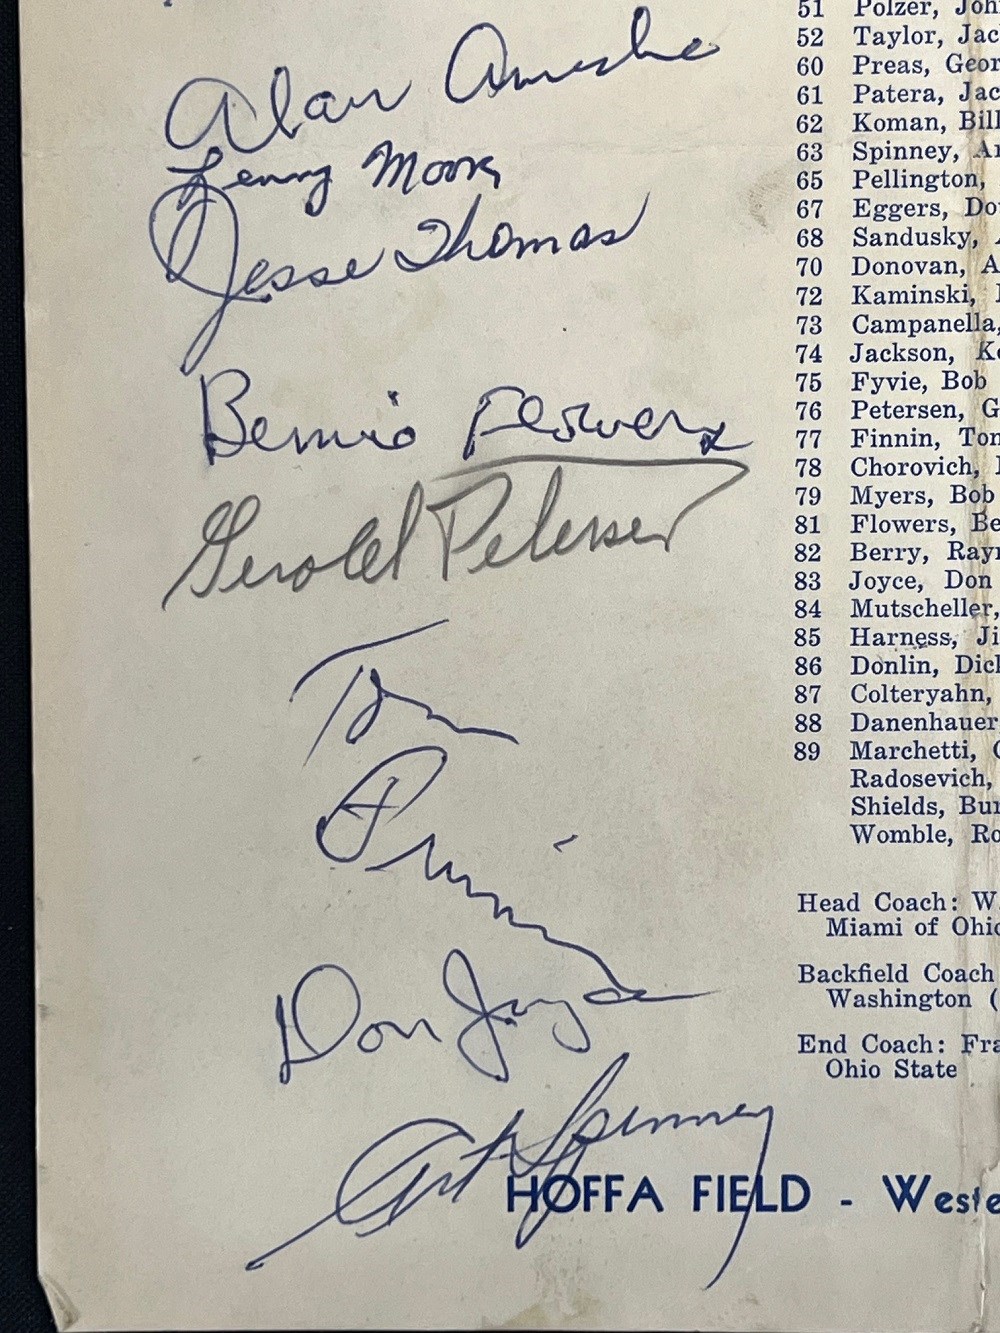 Alan Ameche
Lenny Moore
Jesse Thomas
Bernie Flowers
Gerald Petersen
Tom
Finnin
Don Joyce
Art Spinney
51 Polzer, Joh
52 Taylor, Jac
60 Preas, Geor
61 Patera, Jac
62 Koman, Bill
63 Spinney, Ar
65 Pellington,
67 Eggers, Do
68 Sandusky, A
70 Donovan, A
72 Kaminski,
73 Campanella,
74 Jackson, Ke
75 Fyvie, Bob
76 Petersen, G
77 Finnin, Tom
78 Chorovich,
79 Myers, Bob
81 Flowers, Be
82 Berry, Raym
83 Joyce, Don
84 Mutscheller,
85 Harness, Ji
86 Donlin, Dick
87 Colteryahn,
88 Danenhauer,
89 Marchetti, G
Radosevich,
Shields, Bur
Womble, Ro
Head Coach: W.
Miami of Ohio
Backfield Coach
Washington (
End Coach: Fra
Ohio State
HOFFA FIELD - Weste